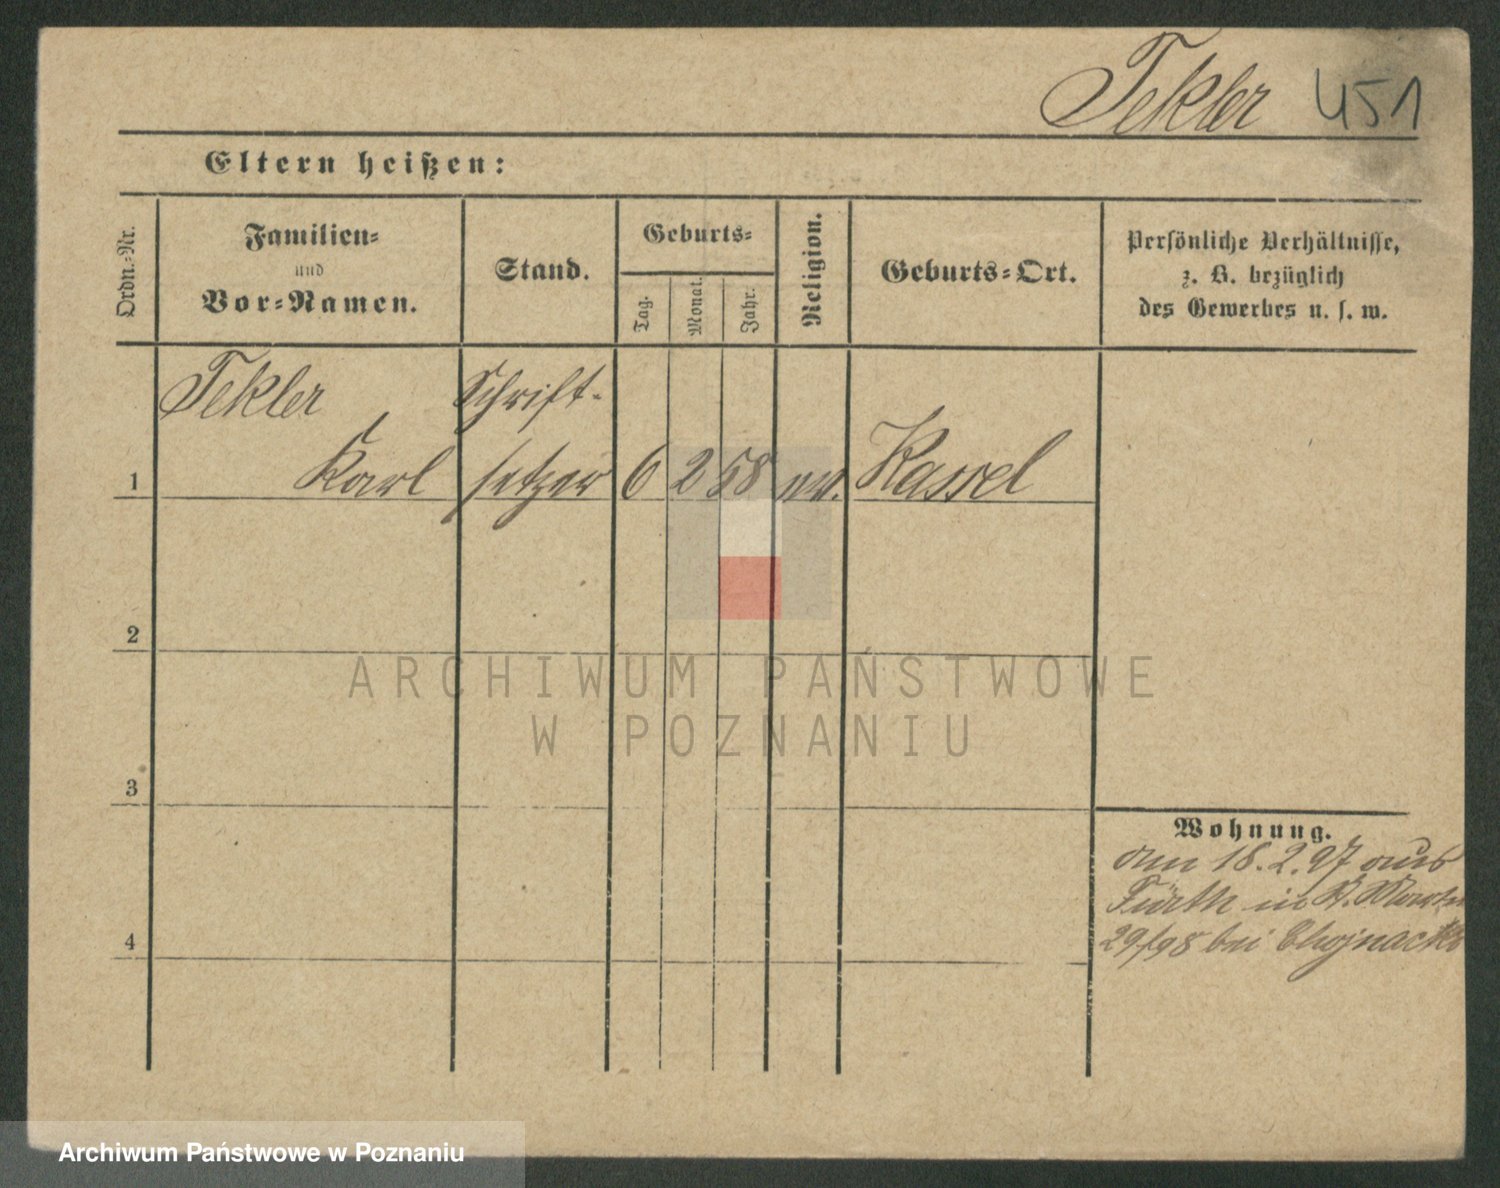 Tekler 451
Eltern heißen:
Ordn.-Nr.
Familien-
und
Vor-Namen.
Stand.
Geburts-
Tag.
Monat.
Jahr.
Religion.
Geburts-Ort.
Persönliche Verhältnisse,
z. B. bezüglich
des Gewerbes u. s. w.
Tekler Schrift-
1 Karl setzer 6 2 58 ev. Kassel
2
3
4
Wohnung.
am 18.2.97 aus
Fürth in St. Martin
29/98 bei Chojnacki
ARCHIWUM PAŃSTWOWE
W POZNANIU
Archiwum Państwowe w Poznaniu